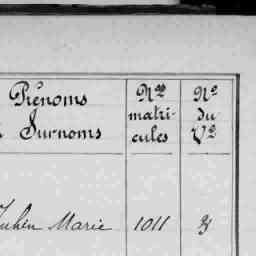 Prénoms
Surnoms
Nos
matri-
cules
No
du
Vo
Julien Marie 1011